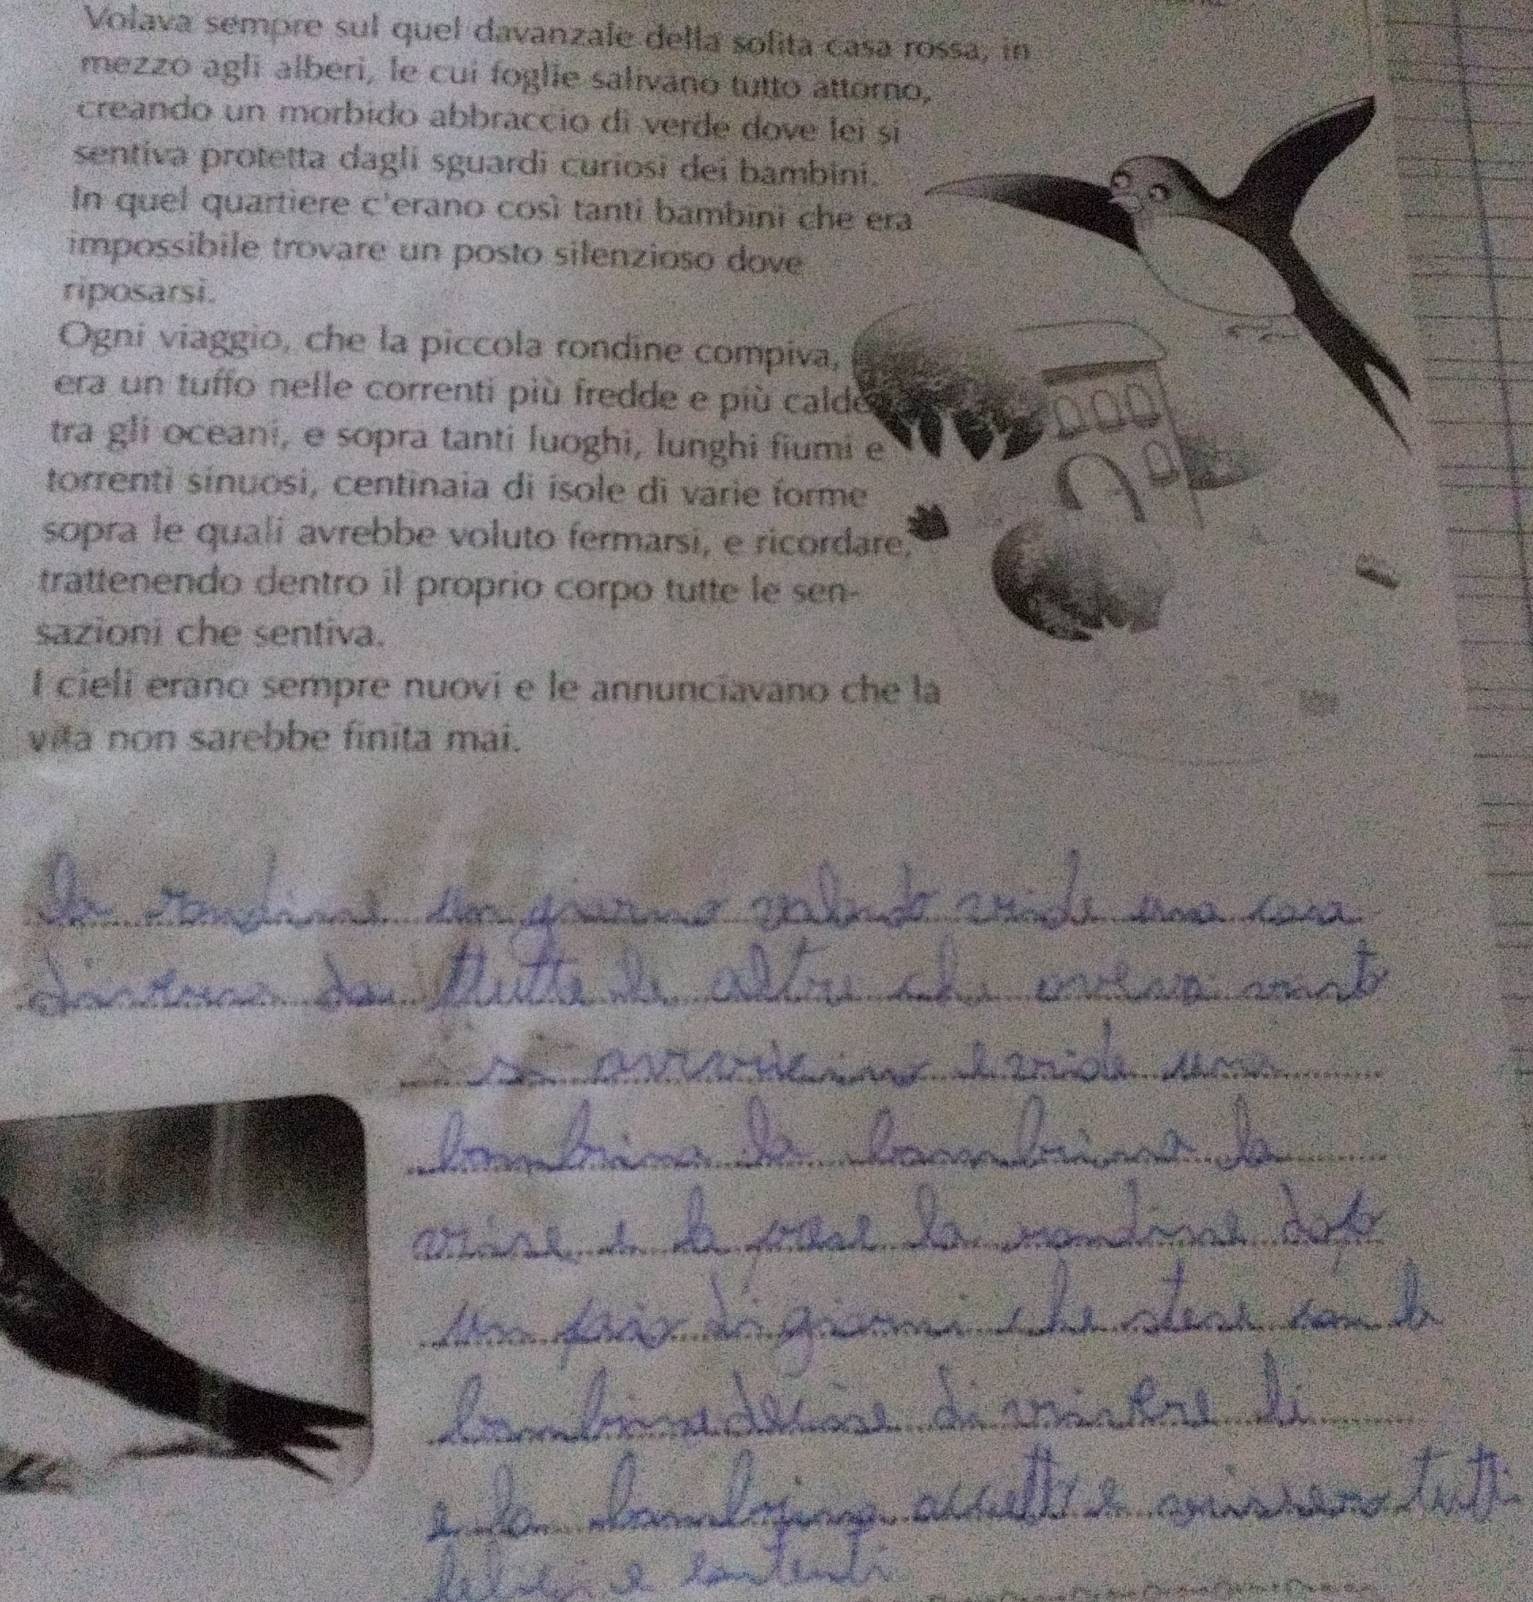 Volava sempre sul quel davanzale della solita casa rossa, in
mezzo agli alberi, le cui foglie salivano tutto attorno,
creando un morbido abbraccio di verde dove lei si
sentiva protetta dagli sguardi curiosi dei bambini.
In quel quartiere c'erano così tanti bambini che era
impossibile trovare un posto silenzioso dove
riposarsi.
Ogni viaggio, che la piccola rondine compiva,
era un tuffo nelle correnti più fredde e più calde
tra gli oceani, e sopra tanti luoghi, lunghi fiumi e
torrenti sinuosi, centinaia di isole di varie forme
sopra le quali avrebbe voluto fermarsi, e ricordare,
trattenendo dentro il proprio corpo tutte le sen-
sazioni che sentiva.
I cieli erano sempre nuovi e le annunciavano che la
vita non sarebbe finita mai.
la rondine un giorno volando vide una casa
diversa da tutte le altre che aveva visto
si avvicino e vide una
bambina la bambina la
vide e la prese la rondine dopo
un paio di giorni che stette con la
bambina decise di vivere li
e la bambina accetto e vissero tutti
felici e contenti